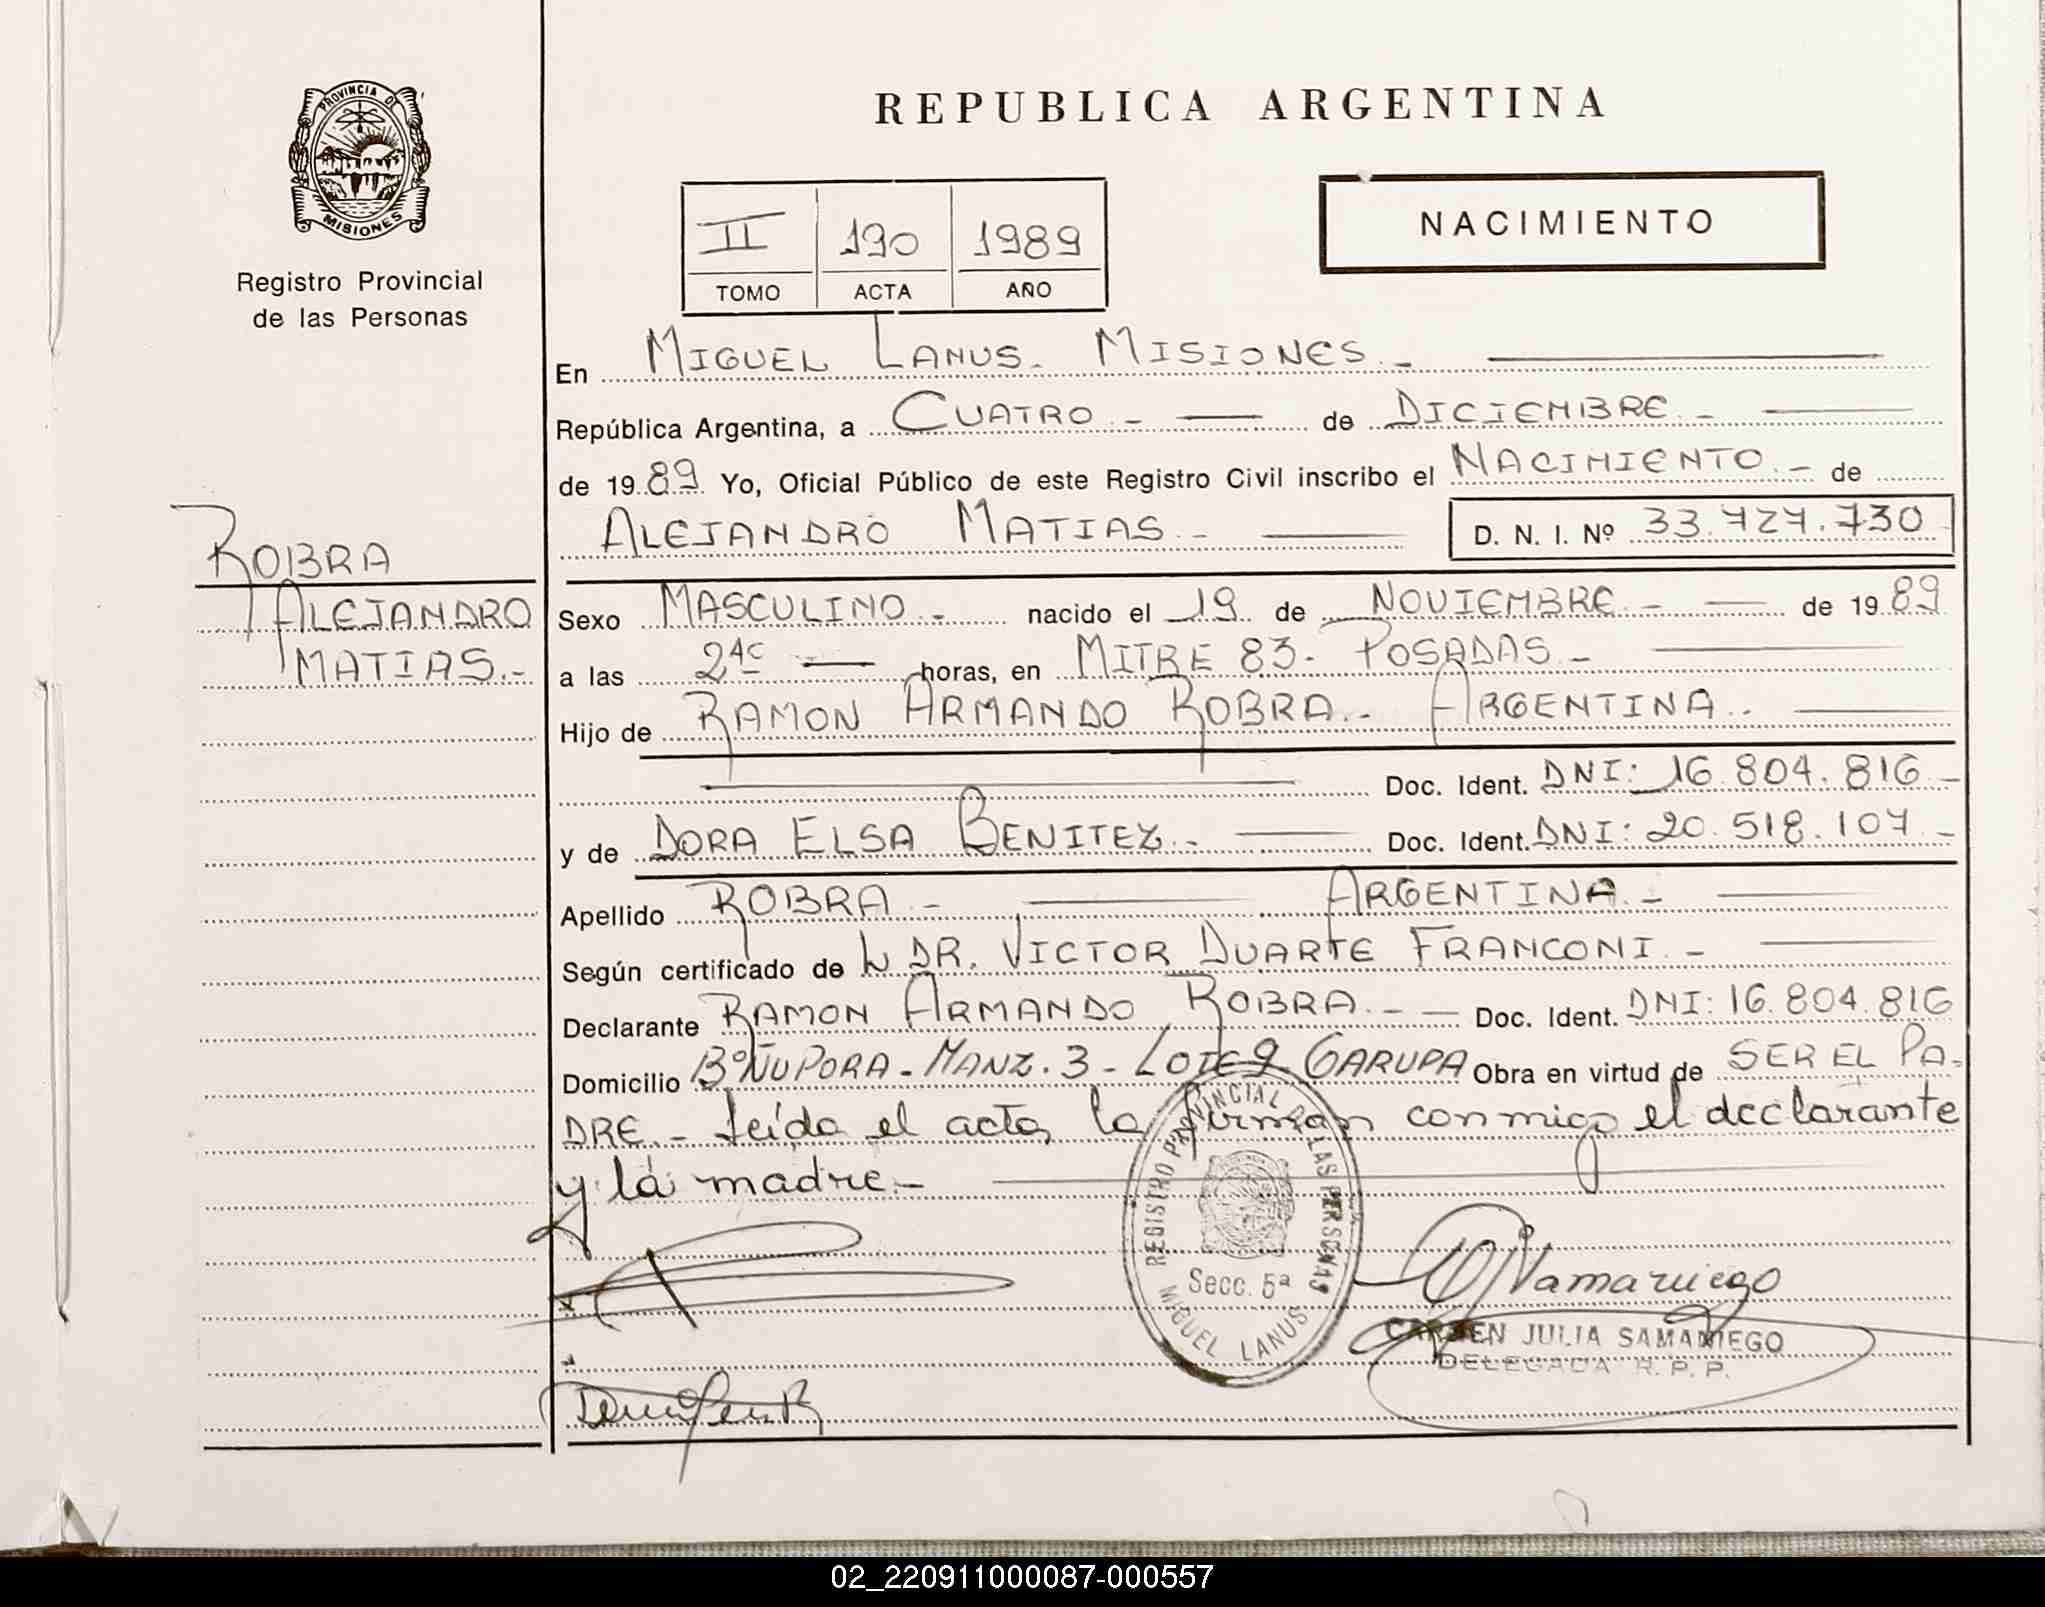 PROVINCIA D
MISIONES
Registro Provincial
de las Personas
REPUBLICA ARGENTINA
II 190 1989
TOMO ACTA AÑO
NACIMIENTO
En MIGUEL LANUS. MISIONES.-
República Argentina, a CUATRO.- de DICIEMBRE.-
de 1989 Yo, Oficial Público de este Registro Civil inscribo el NACIMIENTO.- de
ALEJANDRO MATIAS.- D. N. I. Nº 33.727.730
ROBRA
ALEJANDRO
MATIAS.-
Sexo MASCULINO.- nacido el 19 de NOVIEMBRE.- de 1989
a las horas, en MITRE 83- POSADAS.-
Hijo de RAMON ARMANDO ROBRA.- ARGENTINA.-
Doc. Ident. DNI: 16.804.816.-
y de DORA ELSA BENITEZ.- Doc. Ident. DNI: 20.518.107.-
Apellido ROBRA.- ARGENTINA.-
Según certificado de DR. VICTOR DUARTE FRANCONI.-
Declarante RAMON ARMANDO ROBRA.- Doc. Ident. DNI: 16.804.816
Domicilio Bº ÑU PORA - MANZ. 3 - LOTE 9 GARUPA Obra en virtud de SER EL PA-
DRE.- Leída el acta, la firman conmigo el declarante
y la madre.-
REGISTRO PROVINCIAL DE LAS PERSONAS
Secc. 5ª
MIGUEL LANUS
Samaniego
CARMEN JULIA SAMANIEGO
DELEGADA R.P.P.
02_220911000087-000557